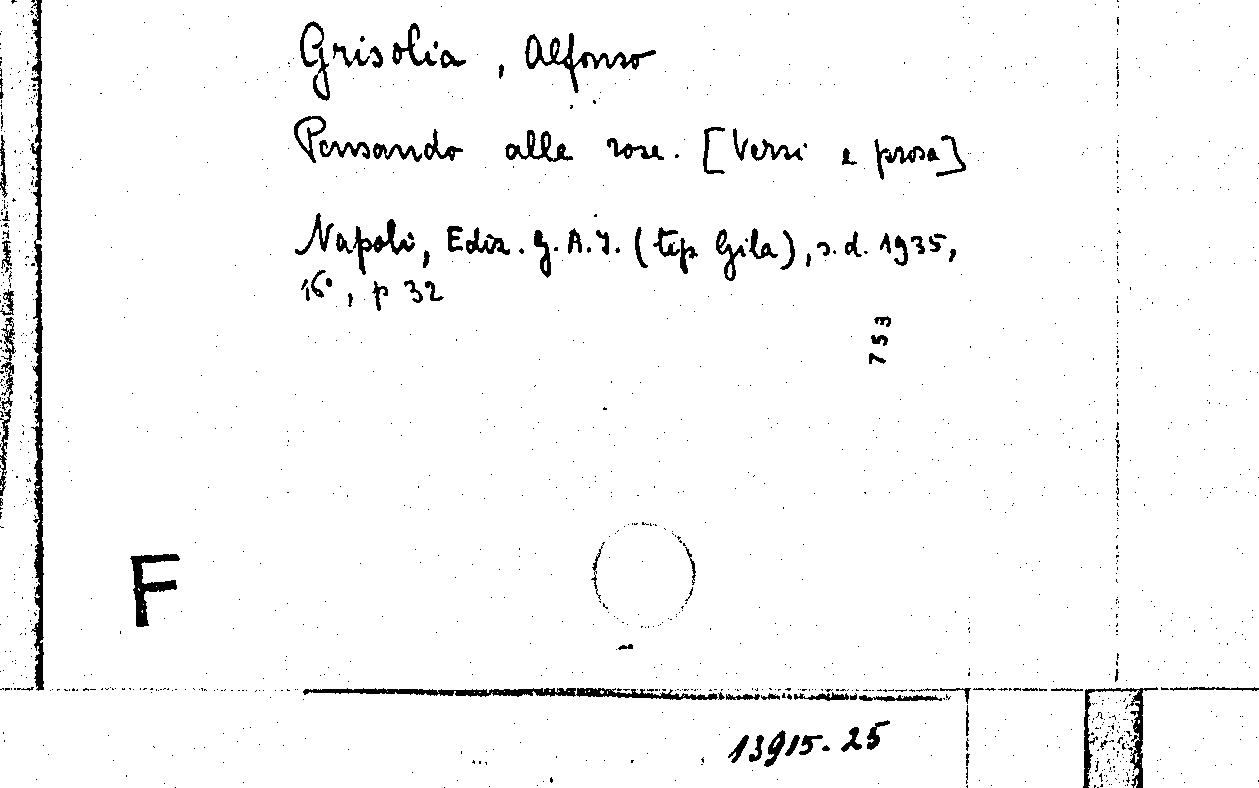 Grisolia, Alfonso
Pensando alle rose. [Versi e prosa]
Napoli, Ediz. G.A.I. (tip Gila), s.d. 1935,
16°, p 32
753
F
13915.25